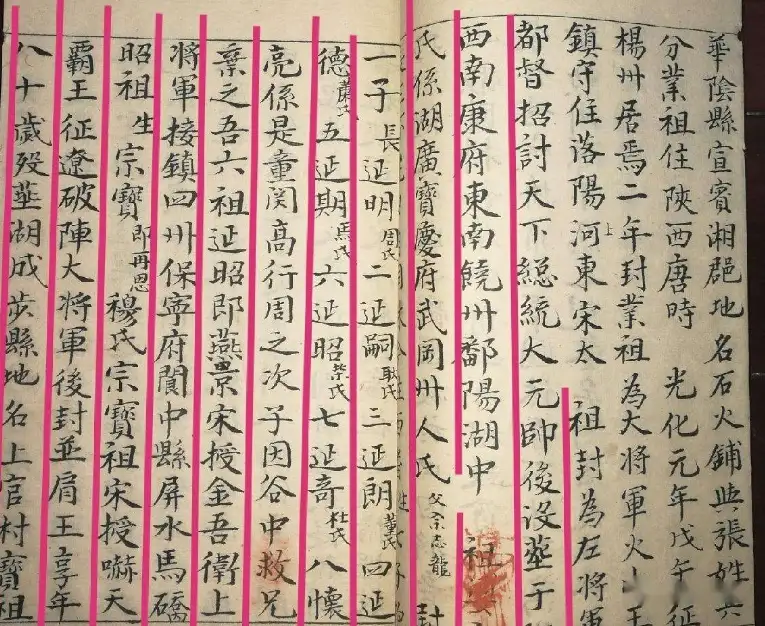 華陰縣宣賓湘邑地名石火鋪與張姓六
分業祖住陝西唐時 光化元年戊午征
楊州居焉二年封業祖為大將軍火山王
鎮守住落陽河上東宋太 祖封為左將軍
都督招討天下縂統大元帥後没塟于
西南康府東南饒州鄱陽湖中 祖
氏係湖廣寶慶府武岡州人氏 父宗志龍 封
一子長延明周氏二延嗣耿氏三延朗董氏四延
德蕭氏五延期馬氏六延昭柴氏七延奇杜氏八懷
亮係是童関高行周之次子因谷中救兄
棄之吾六祖延昭即燕景宋授金吾衛上
將軍接鎮四州保寧府閬中縣屏水馬礄
昭祖生宗寶即再思穆氏宗寶祖宋授嚇天
霸王征遼破陣大將軍後封並肩王享年
八十歲殁塟湖成步縣地名上官村寶祖